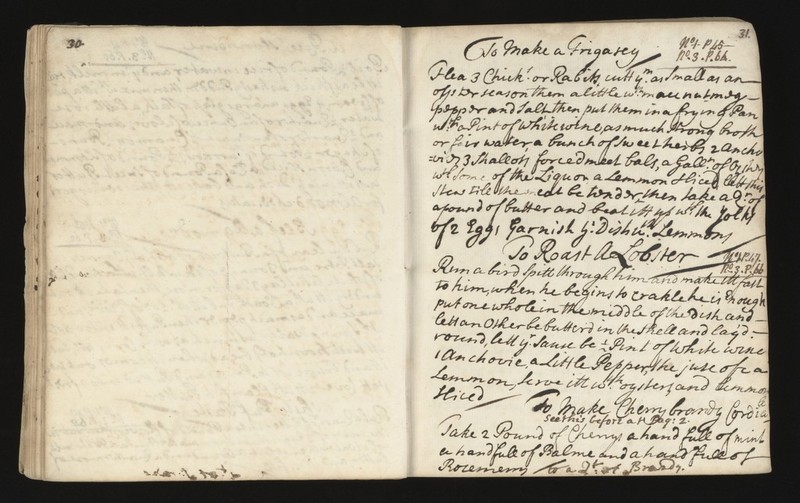 30.
31.
To Make a Frigasey
No. 1. P. 45
No. 3. P. 64.
Flea 3 Chick: or Rabits, cutt ym as Small as an
oyster season them a little wth mace nutmeg
pepper and Salt, then put them in a frying Pan
wth a Pint of white wine, as much strong broth
or fair water, a bunch of sweet herbs 2 Ancho
vies, 3 Shallots forced meet bals, a Gall: of Oysters
wth Som: of the Liquor a Lemmon Sliced, lett this
Stew till the meat be tender, then take a Qr. of
a pound of butter and beat itt up wth the Yolks
of 2 Eggs Garnish ye Dish wth Lemmons
To Roast A Lobster
No. 1. P. 47.
No. 3. P. 66
Run a bird spitt through him and make itt fast
to him, when he begins to crakle he is Enough
put one whole in the middle of the Dish and
lett an Other be butterd in the shell and lay'd
round, lett ye Sause be ½ Pint of white wine
1 Anchovie, a Little Pepper, the juse of a
Lemmon, Serve itt wth oysters, and Lemmon
Sliced
To Make Cherry brandy Cordial
See this before att Pag: 2.
Take 2 Pound of Cherrys a hand full of mint
a handfull of Balme and a hand full of
Rosemerry to a Qt. of Brandy.